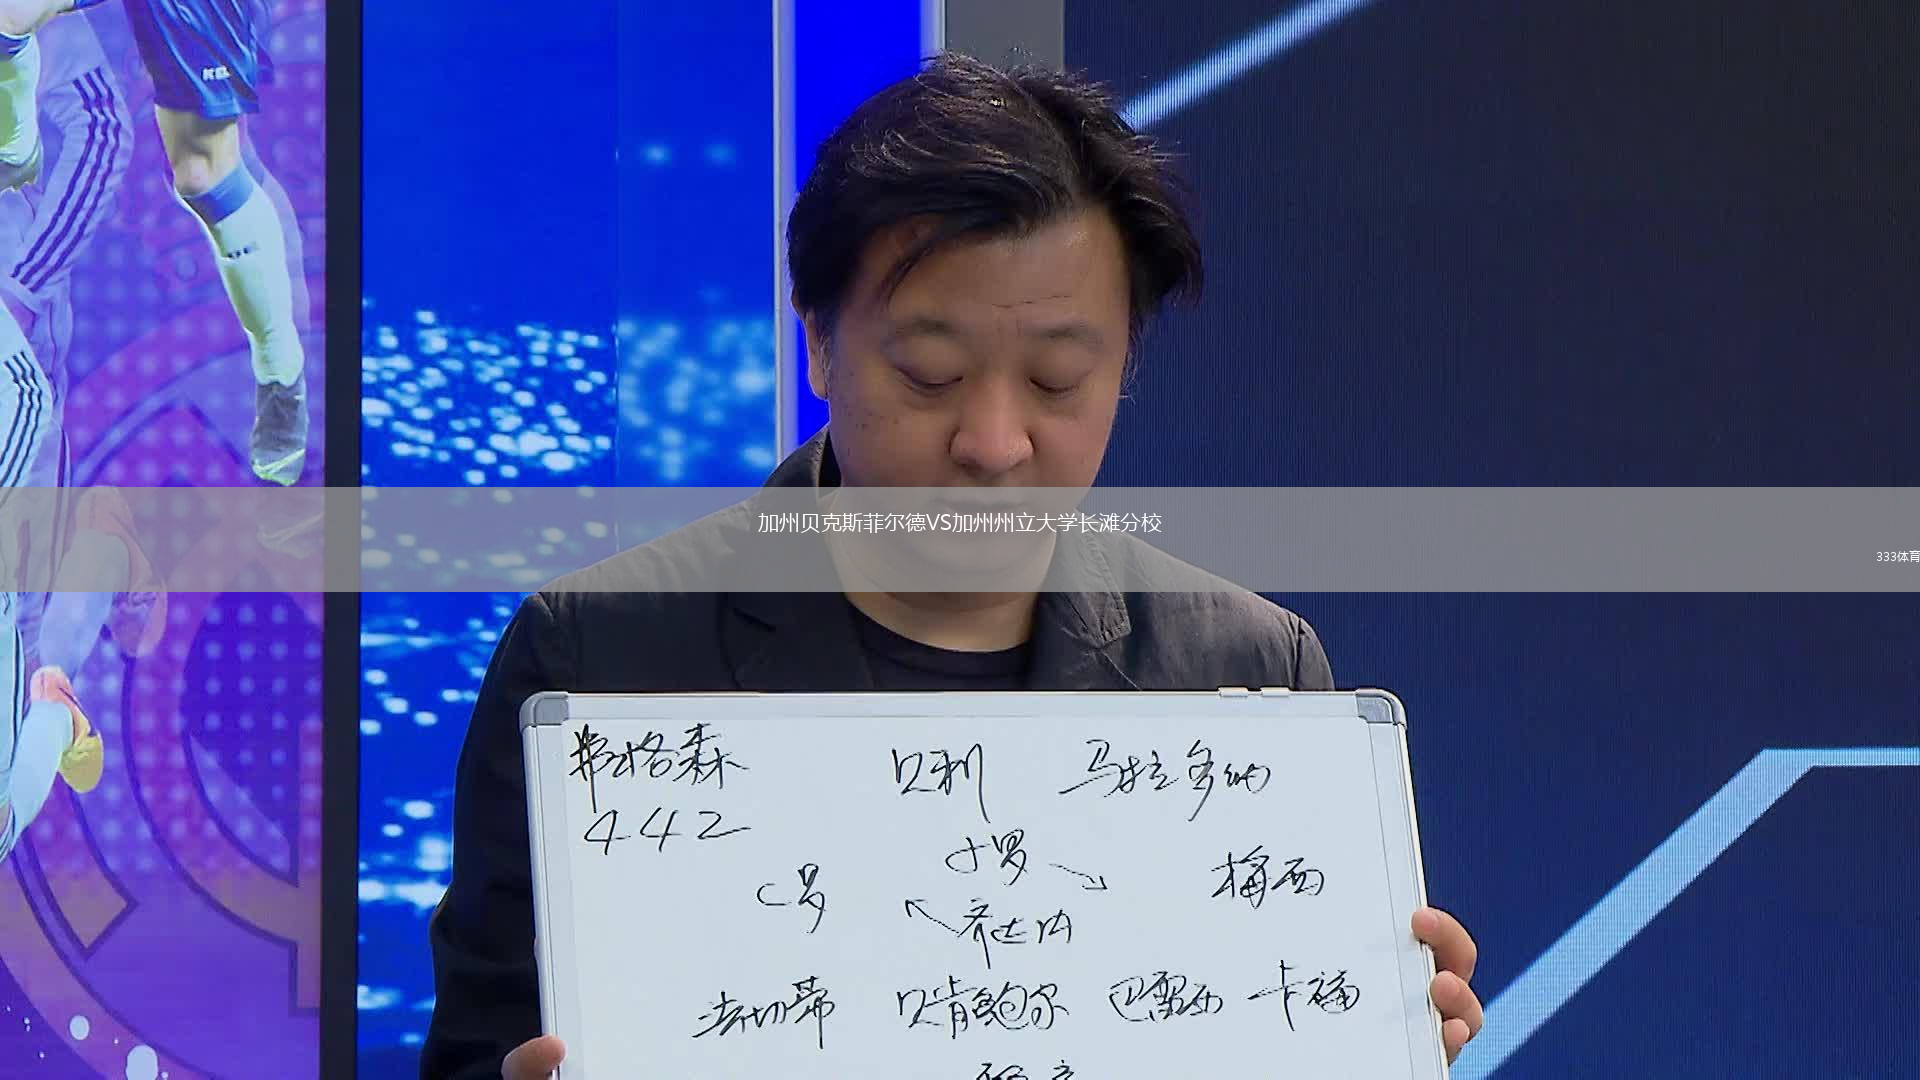 加州贝克斯菲尔德VS加州州立大学长滩分校
333体育
弗格森 贝利 马拉多纳
442
小罗
C罗 梅西
齐达内
法切蒂 贝肯鲍尔 巴雷西 卡福